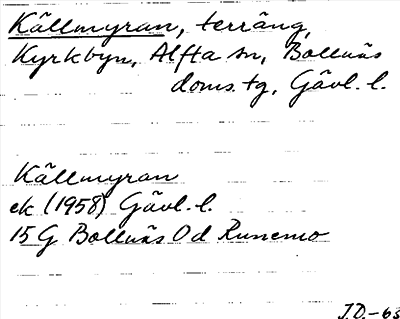 Källmyran, terräng,
Kyrkbyn, Alfta sn, Bollnäs
doms.tg, Gävl. l.
Källmyran
ek (1958) Gävl. l.
15 G Bollnäs Od Runemo
J.D.-63